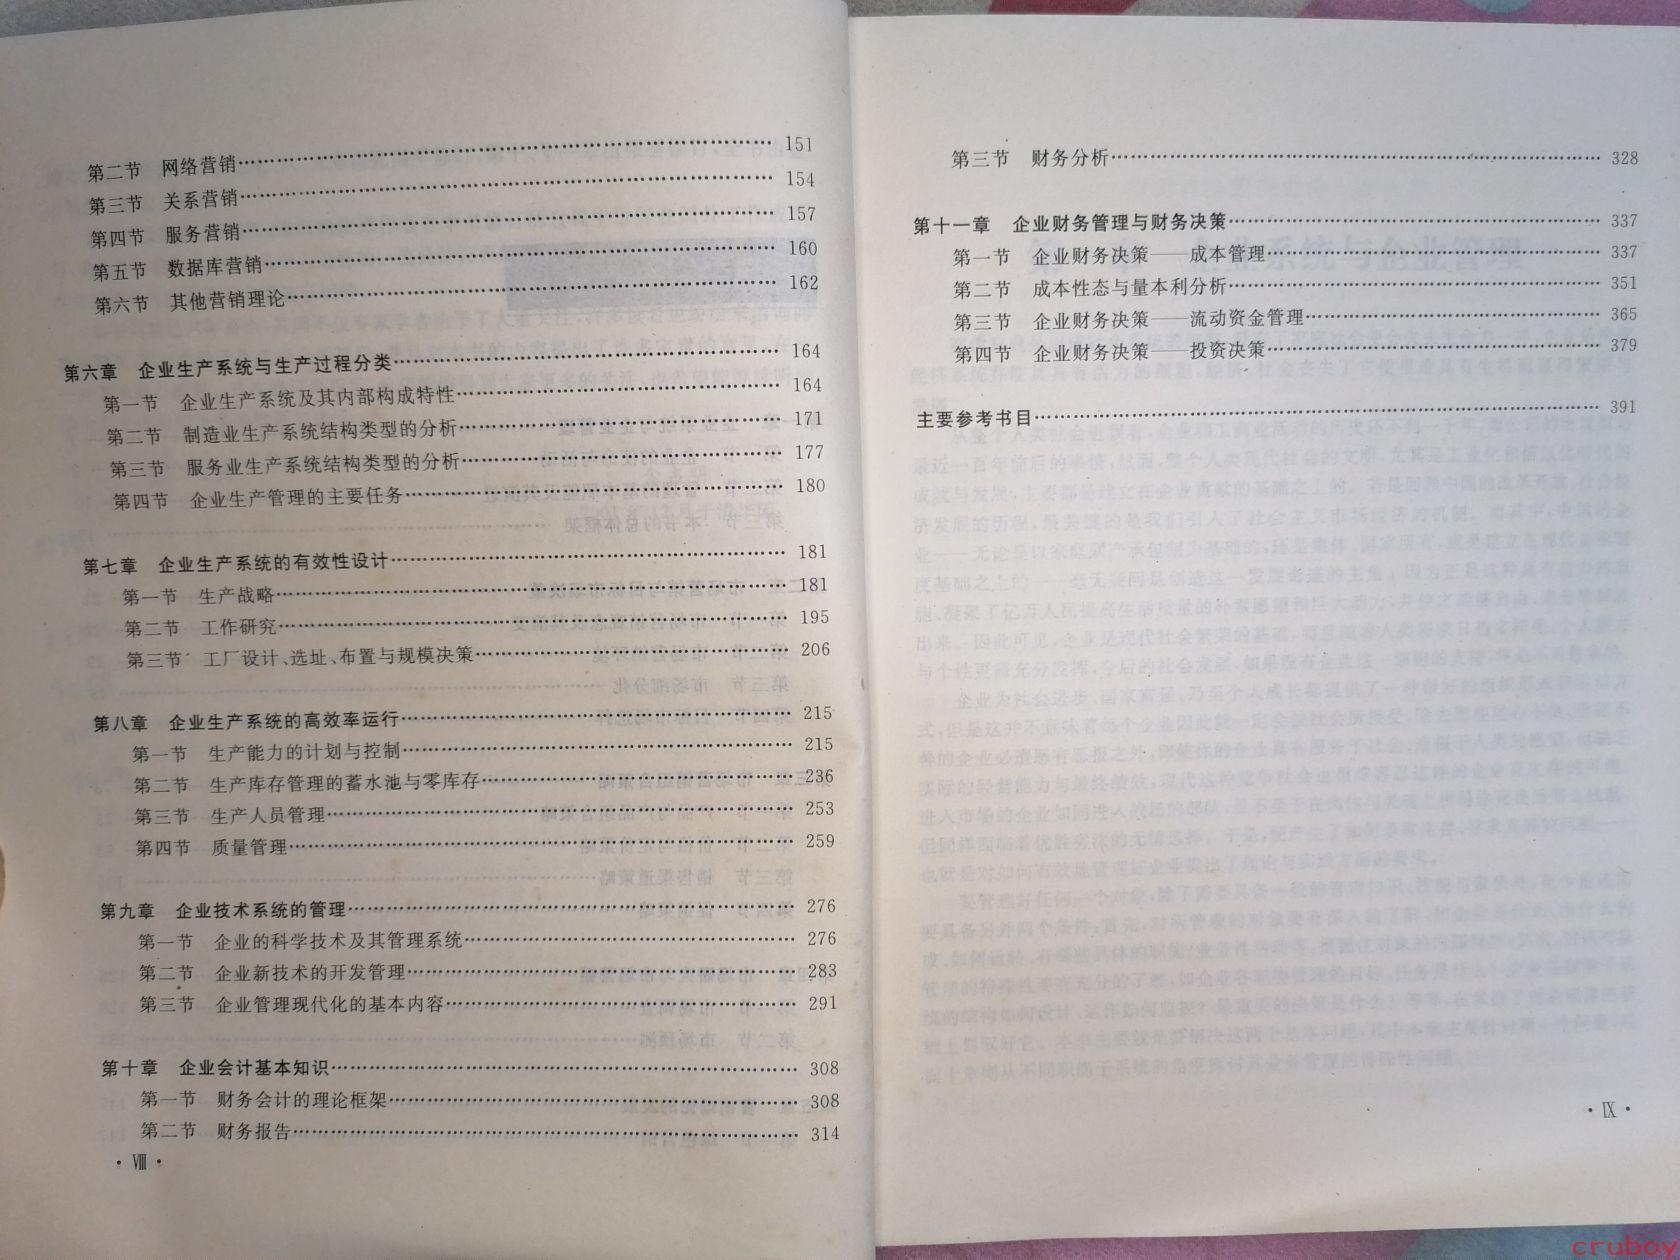 第二节 网络营销……151
第三节 关系营销……154
第四节 服务营销……157
第五节 数据库营销……160
第六节 其他营销理论……162
第六章 企业生产系统与生产过程分类……164
第一节 企业生产系统及其内部构成特性……164
第二节 制造业生产系统结构类型的分析……171
第三节 服务业生产系统结构类型的分析……177
第四节 企业生产管理的主要任务……180
第七章 企业生产系统的有效性设计……181
第一节 生产战略……181
第二节 工作研究……195
第三节 工厂设计、选址、布置与规模决策……206
第八章 企业生产系统的高效率运行……215
第一节 生产能力的计划与控制……215
第二节 生产库存管理的蓄水池与零库存……236
第三节 生产人员管理……253
第四节 质量管理……259
第九章 企业技术系统的管理……276
第一节 企业的科学技术及其管理系统……276
第二节 企业新技术的开发管理……283
第三节 企业管理现代化的基本内容……291
第十章 企业会计基本知识……308
第一节 财务会计的理论框架……308
第二节 财务报告……314
·Ⅷ·
第三节 财务分析……328
第十一章 企业财务管理与财务决策……337
第一节 企业财务决策——成本管理……337
第二节 成本性态与量本利分析……351
第三节 企业财务决策——流动资金管理……365
第四节 企业财务决策——投资决策……379
主要参考书目……391
·Ⅸ·
cruboy